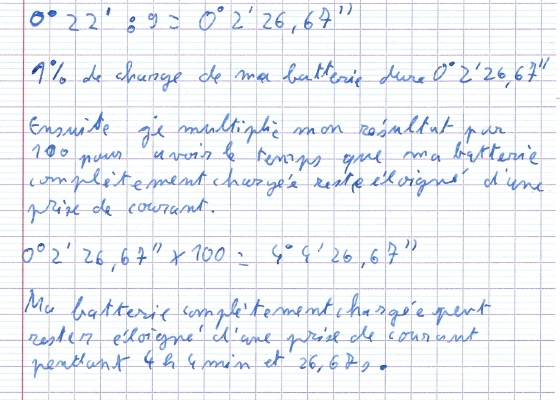 0° 22' : 9 = 0° 2' 26,67"
1% de charge de ma batterie dure 0° 2' 26,67"
Ensuite je multiplie mon résultat par
100 pour avoir le temps que ma batterie
complètement chargée reste éloigné d'une
prise de courant.
0° 2' 26,67" x 100 = 4° 4' 26,67"
Ma batterie complètement chargée peut
rester éloigné d'une prise de courant
pendant 4 h 4 min et 26,67s.